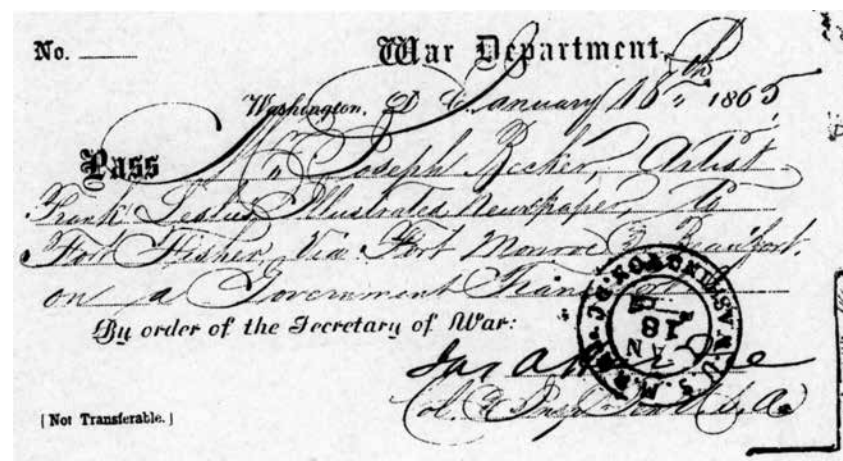 No. ____
War Department,
Washington, D. C. January 18th 1865
Pass Mr. Joseph Becker, Artist
Frank Leslies Illustrated Newspaper, to
Fort Fisher, Via. Fort Monroe & Beaufort.
on a Government Transport
By order of the Secretary of War:
Jas A
Col. &
[Not Transferable.]
JAN
18